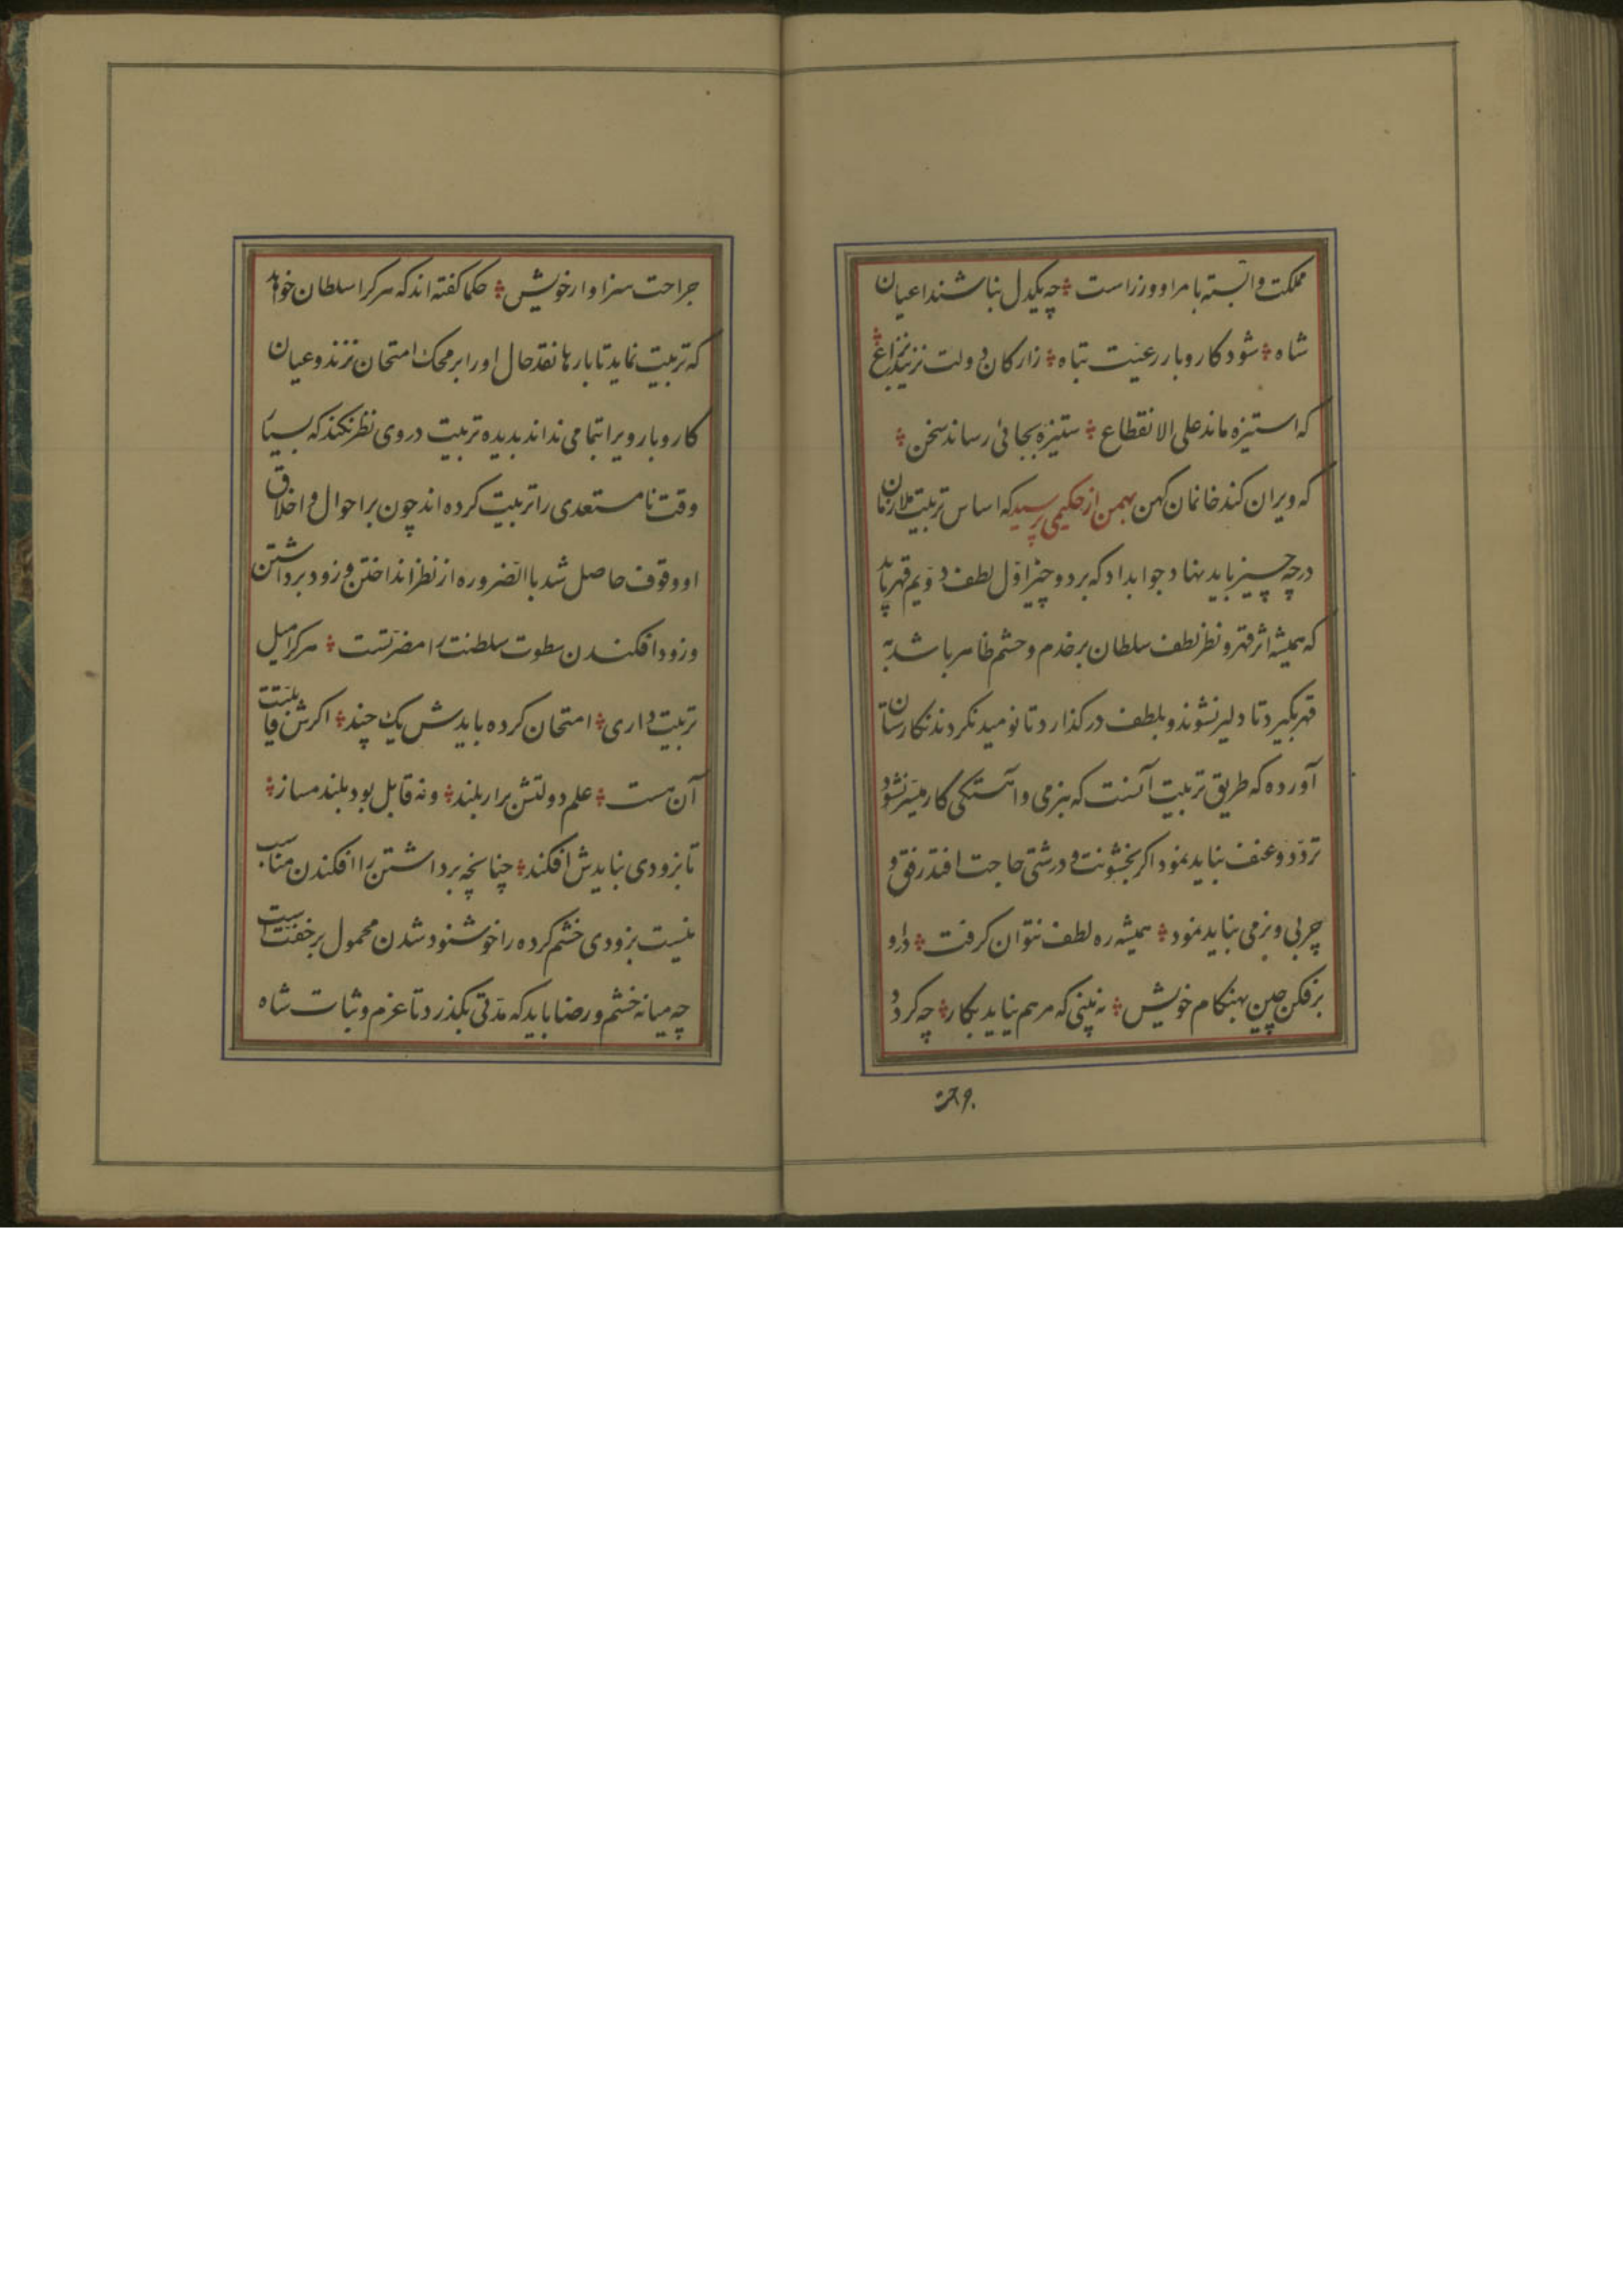 مملکت وابسته بامرا و وزراست ؞ چه یکدل نباشند اعیان
شاه ؞ شود کاروبار رعیت تباه ؞ ز ارکان دولت نزیبد نزاع ؞
که استیزه ماند علی الانقطاع ؞ ستیزه بجائی رساند سخن ؞
که ویران کند خانمان کهن بهمن از حکیمی پرسید که اساس تربیت ملازمان
در چه چیز باید نهاد جواب داد که بر دو چیز اول لطف دویم قهر باید
که همیشه اثر قهر و نظر لطف سلطان بر خدم و حشم ظاهر باشد به
قهر بگیرد تا دلیر نشوند و بلطف درگذارد تا نومید نگردند نگارستان
آورده که طریق تربیت آنست که بنرمی و آهستگی کار میسر نشود
تردد و عنف نباید نمود اگر بخشونت و درشتی حاجت افتد رفق و
چربی و نرمی نباید نمود ؞ همیشه ره لطف نتوان گرفت ؞ در او
برفکن چین بهنگام خویش ؞ نه بینی که مرهم نیاید بکار ؞ چه کرد
جراحت سزاوار خویش ؞ حکما گفته اند که هر کرا سلطان خواهد
که تربیت نماید تا بارها نقد حال او را بر محک امتحان نزند و عیان
کاروبار ویرا بتمامی نداند بدیده تربیت در وی نظر نکند که بسیار
وقت نامستعدی را تربیت کرده اند چون بر احوال و اخلاق
او وقوف حاصل شد باالضروره از نظر انداختن و زود برداشتن
و زود افکندن سطوت سلطنت را مضرتست ؞ هر کرا میل
تربیت داری ؞ امتحان کرده بایدش یک چند ؞ اگرش قابلیت
آن هست ؞ علم دولتش برار بلند ؞ ونه قابل بود بلند مساز ؞
تا بزودی نبایدش افکند ؞ چنانچه برداشتن را افکندن مناسب
نیست بزودی خشم کرده را خوشنود شدن محمول بر خفت است
چه میانه خشم و رضا باید که مدتی بگذرد تا عزم و ثبات شاه